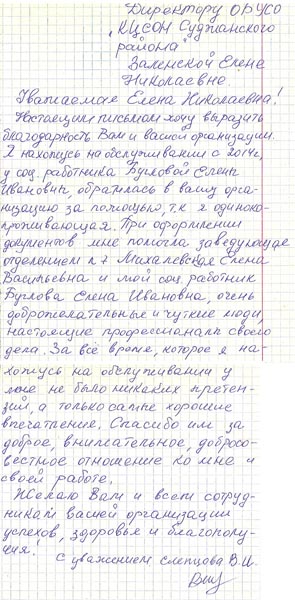 Директору ОБУСО
"КЦСОН Суджанского
района"
Заленской Елене
Николаевне.
Уважаемая Елена Николаевна!
Настоящим письмом хочу выразить
благодарность Вам и вашей организации.
Я нахожусь на обслуживании с 2014г,
у соц. работника Бугловой Елены
Ивановны, обратилась в вашу орга-
низацию за помощью, т.к я одиноко-
проживающая. При оформлении
документов мне помогла заведующая
отделением №7 Михалевская Елена
Васильевна и мой соц. работник
Буглова Елена Ивановна, очень
доброжелательные и чуткие люди,
настоящие профессионалы своего
дела. За всё время, которое я на-
хожусь на обслуживании у
мне не было никаких претен-
зий, а только самые хорошие
впечатления. Спасибо им за
доброе, внимательное, добросо-
вестное отношение ко мне и
своей работе.
Желаю Вам и всем сотруд-
никам вашей организации
успехов, здоровья и благополу-
чия.
С уважением Слепцова В.И.